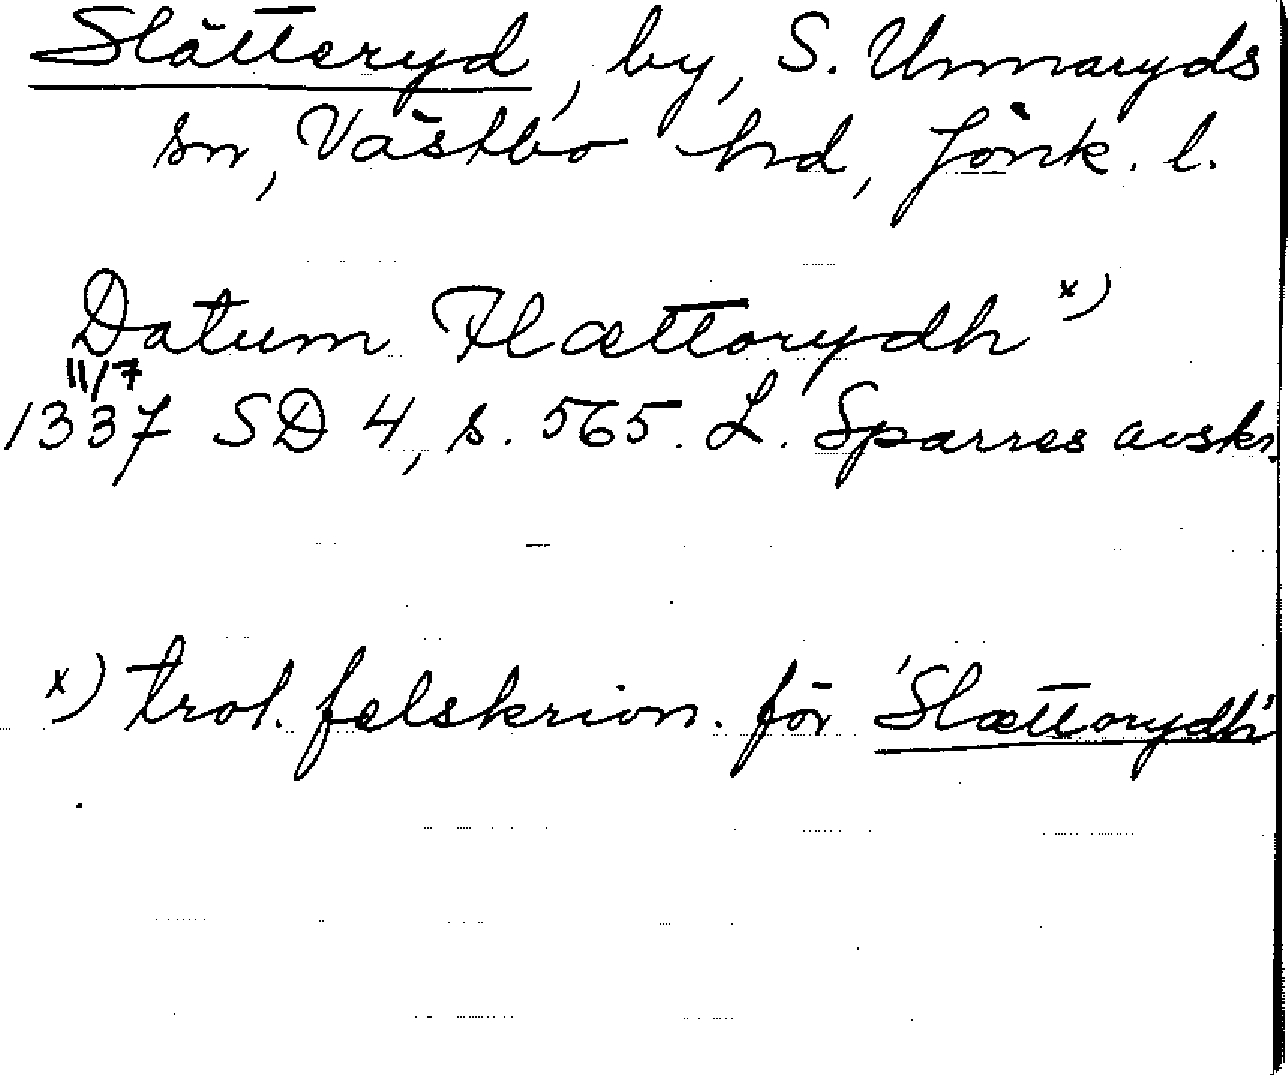 Slätteryd, by, S. Unnaryds
sn, Västbo hd, Jönk. l.
Datum Flættorydh x)
11/7
1337 SD 4, s. 565. L. Sparres avskr.
x) trol. felskrivn. för 'Slættorydh'